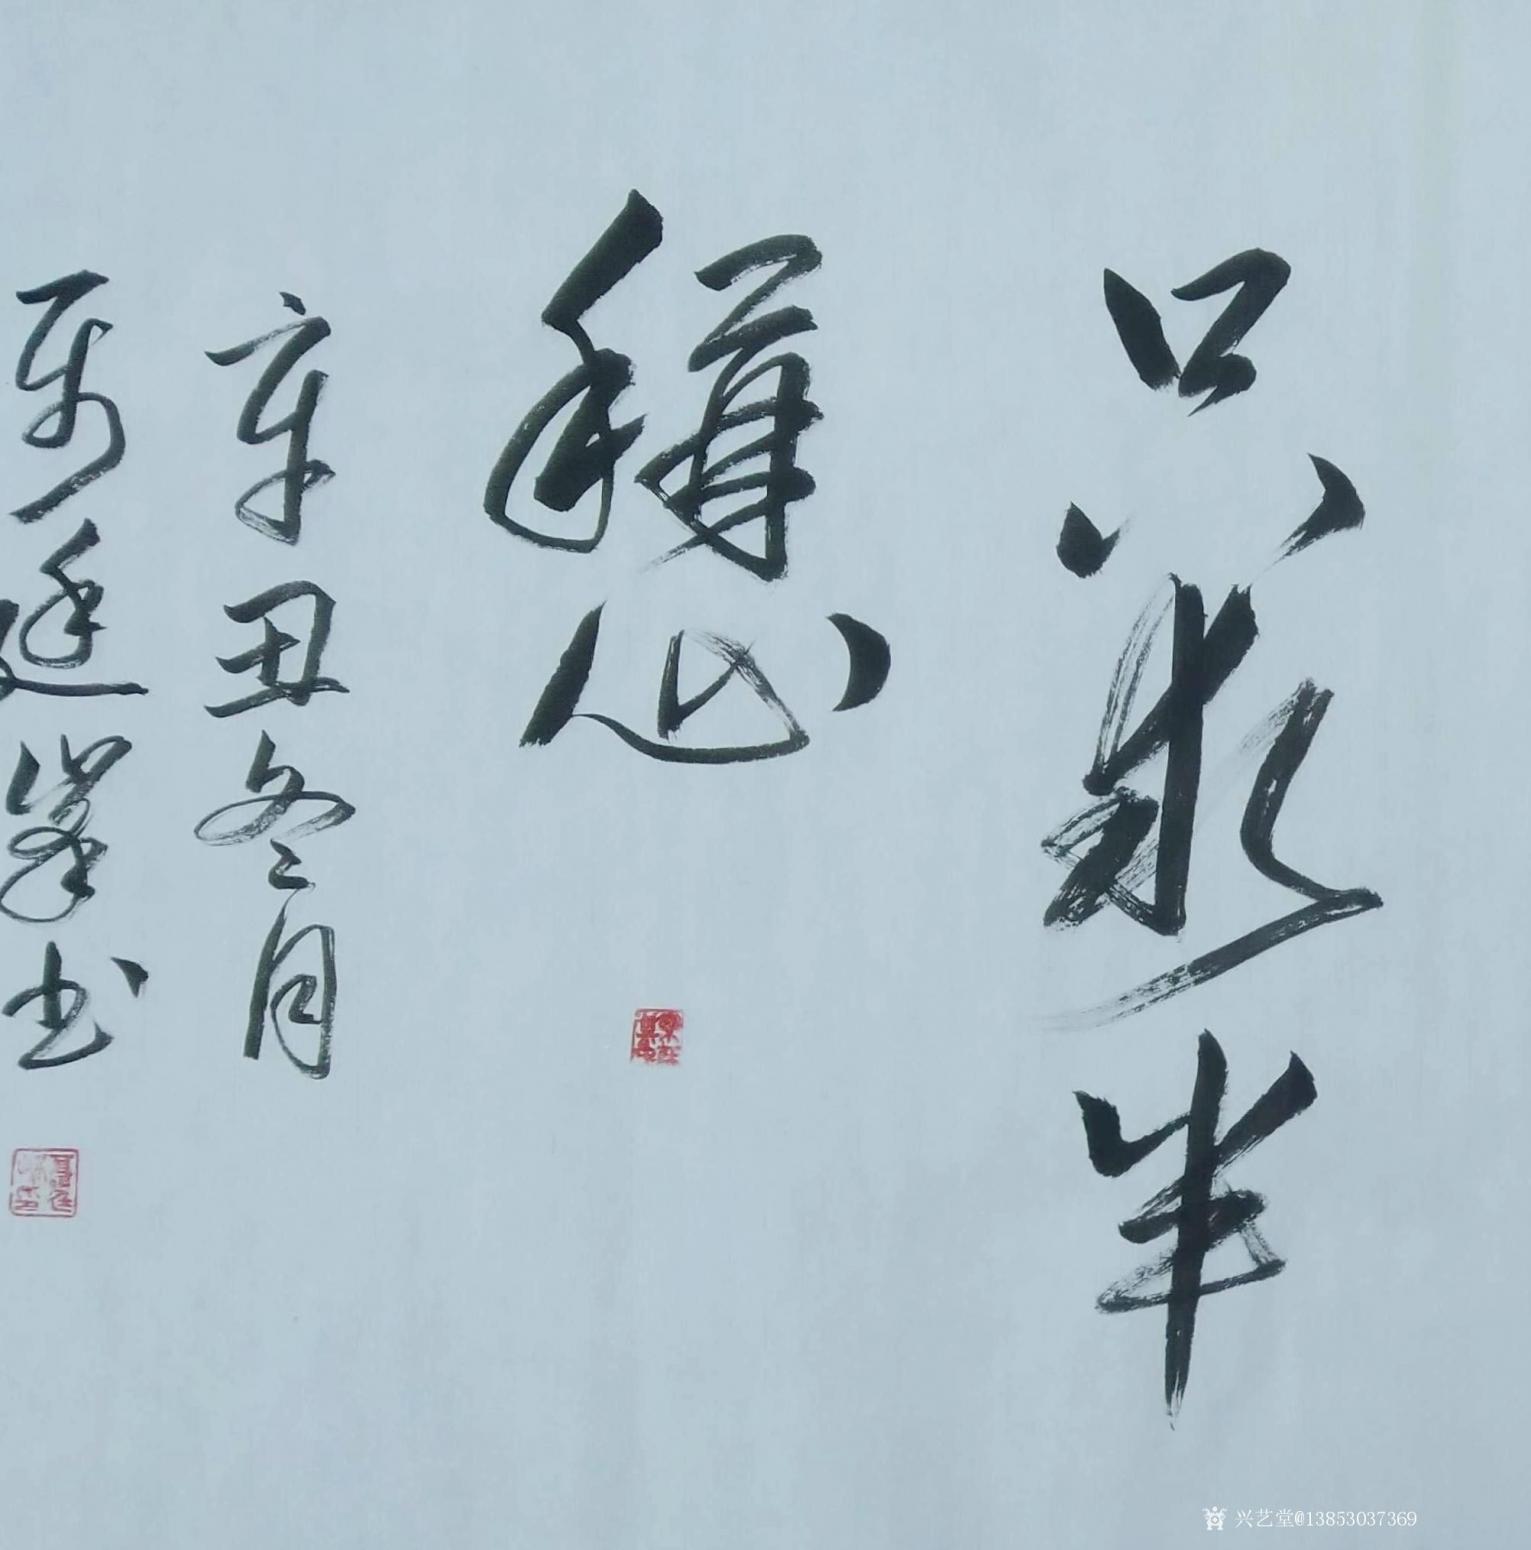 只求半
称心
辛丑冬月
廷峯书
兴艺堂@13853037369